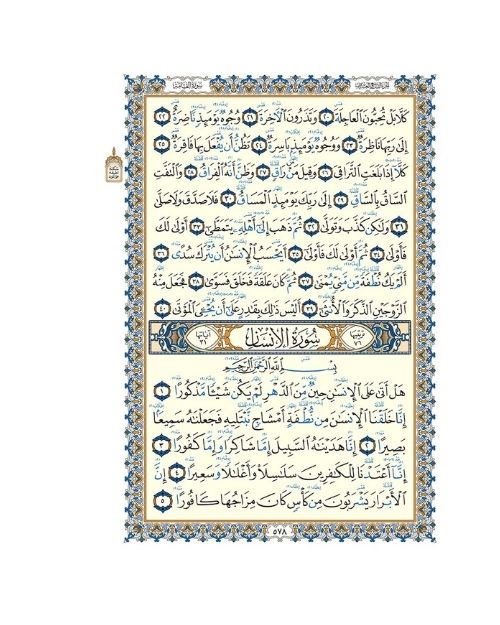 سُورَةُ القِيَامَةِ
الجُزْءُ التَّاسِعُ وَالعِشْرُونَ
كَلَّا بَلْ تُحِبُّونَ ٱلْعَاجِلَةَ ٢٠ وَتَذَرُونَ ٱلْأَخِرَةَ ٢١ وُجُوهٌ يَوْمَئِذٍ نَّاضِرَةٌ ٢٢
إِلَىٰ رَبِّهَا نَاظِرَةٌ ٢٣ وَوُجُوهٌ يَوْمَئِذٍۭ بَاسِرَةٌ ٢٤ تَظُنُّ أَن يُفْعَلَ بِهَا فَاقِرَةٌ ٢٥
كَلَّآ إِذَا بَلَغَتِ ٱلتَّرَاقِيَ ٢٦ وَقِيلَ مَنْ رَاقٍ ٢٧ وَظَنَّ أَنَّهُ ٱلْفِرَاقُ ٢٨ وَٱلْتَفَّتِ
ٱلسَّاقُ بِٱلسَّاقِ ٢٩ إِلَىٰ رَبِّكَ يَوْمَئِذٍ ٱلْمَسَاقُ ٣٠ فَلَا صَدَّقَ وَلَا صَلَّىٰ
٣١ وَلَٰكِن كَذَّبَ وَتَوَلَّىٰ ٣٢ ثُمَّ ذَهَبَ إِلَىٰٓ أَهْلِهِۦ يَتَمَطَّىٰٓ ٣٣ أَوْلَىٰ لَكَ
فَأَوْلَىٰ ٣٤ ثُمَّ أَوْلَىٰ لَكَ فَأَوْلَىٰٓ ٣٥ أَيَحْسَبُ ٱلْإِنسَٰنُ أَن يُتْرَكَ سُدًى ٣٦
أَلَمْ يَكُ نُطْفَةً مِّن مَّنِىٍّ يُمْنَىٰ ٣٧ ثُمَّ كَانَ عَلَقَةً فَخَلَقَ فَسَوَّىٰ ٣٨ فَجَعَلَ مِنْهُ
ٱلزَّوْجَيْنِ ٱلذَّكَرَ وَٱلْأُنثَىٰٓ ٣٩ أَلَيْسَ ذَٰلِكَ بِقَٰدِرٍ عَلَىٰٓ أَن يُحْـِۧىَ ٱلْمَوْتَىٰ ٤٠
تَرْتِيبُهَا ٧٦ سُورَةُ الإِنْسَانِ آيَاتُهَا ٣١
بِسْمِ ٱللَّهِ ٱلرَّحْمَٰنِ ٱلرَّحِيمِ
هَلْ أَتَىٰ عَلَى ٱلْإِنسَٰنِ حِينٌ مِّنَ ٱلدَّهْرِ لَمْ يَكُن شَيْـًٔا مَّذْكُورًا ١
إِنَّا خَلَقْنَا ٱلْإِنسَٰنَ مِن نُّطْفَةٍ أَمْشَاجٍ نَّبْتَلِيهِ فَجَعَلْنَٰهُ سَمِيعًۢا
بَصِيرًا ٢ إِنَّا هَدَيْنَٰهُ ٱلسَّبِيلَ إِمَّا شَاكِرًا وَإِمَّا كَفُورًا ٣
إِنَّآ أَعْتَدْنَا لِلْكَٰفِرِينَ سَلَٰسِلَا۟ وَأَغْلَٰلًا وَسَعِيرًا ٤ إِنَّ
ٱلْأَبْرَارَ يَشْرَبُونَ مِن كَأْسٍ كَانَ مِزَاجُهَا كَافُورًا ٥
٥٧٨